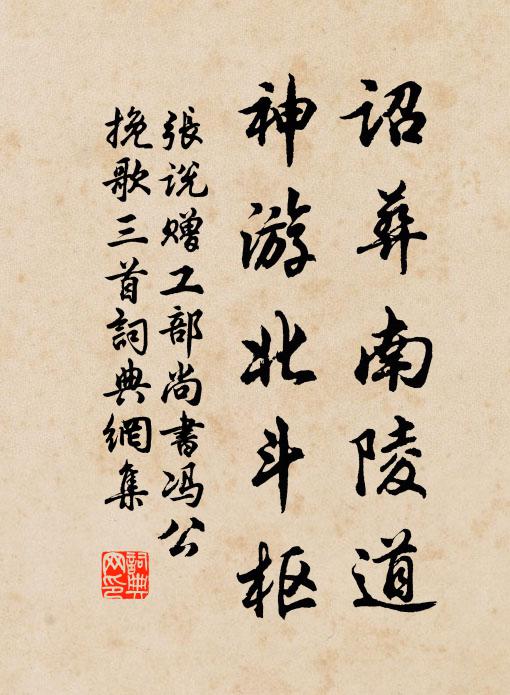 詔葬南陵道
神游北斗枢
張说赠工部尚書冯公
挽歌三首詞典網集
詞典网印